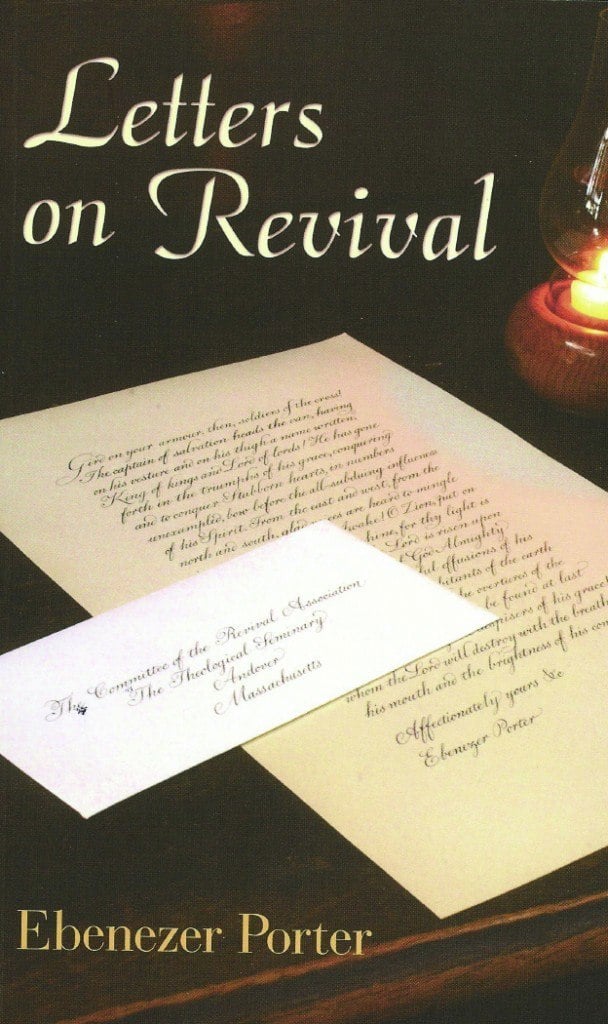 Letters
on Revival
Gird on your armour, then, soldiers of the cross!
The captain of salvation heads the van, having
on his vesture and on his thigh a name written,
King of kings and Lord of lords! He has gone
forth in the triumphs of his grace, conquering
and to conquer. Stubborn hearts, in numbers
unexampled, bow before the all-subduing influence
of his Spirit. From the east and west, from the
north and south, are heard to mingle
O Zion, put on
for thy light is
Lord is risen upon
God Almighty
effusions of his
of the earth
the overtures of the
be found at last
despisers of his grace
whom the Lord will destroy with the breath
his mouth and the brightness of his
Affectionately yours &c
Ebenezer Porter
The Committee of the Revival Association
The Theological Seminary
Andover
Massachusetts
Ebenezer Porter